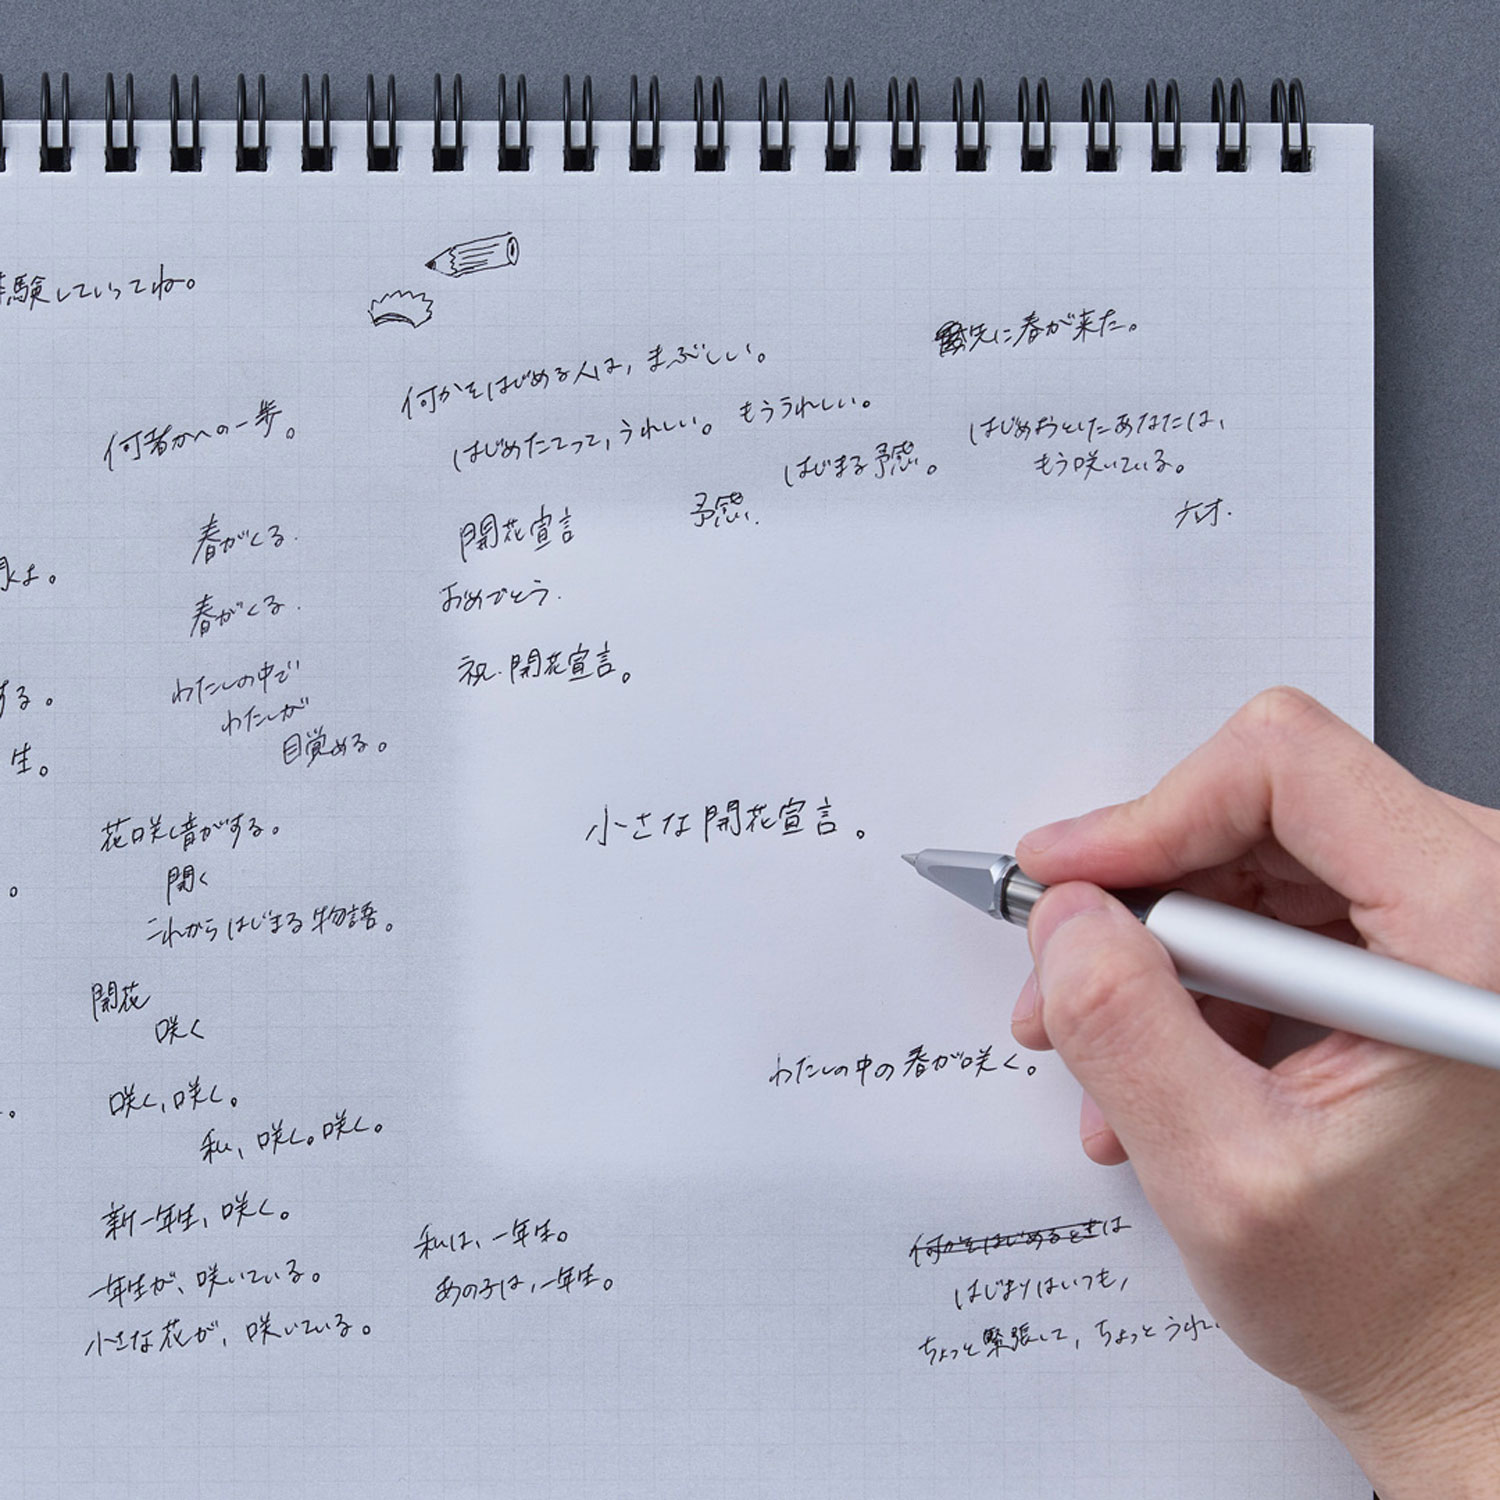 験していってね。
先に春が来た。
何かをはじめる人は、まぶしい。
何者かへの一歩。
はじめたてって、うれしい。もううれしい。
はじめようとしたあなたは、
もう咲いている。
はじまる予感。
予感.
春がくる.
開花宣言
は。
おめでとう.
春がくる.
祝・開花宣言。
わたしの中で
わたしが
目覚める。
する。
生。
小さな開花宣言。
花咲く音がする。
開く
これからはじまる物語。
開花
咲く
わたしの中の春が咲く。
咲く、咲く。
私、咲く。咲く。
新一年生、咲く。
私は、一年生。
何かをはじめるときは
一年生が、咲いている。
あの子は、一年生。
はじまりはいつも、
小さな花が、咲いている。
ちょっと緊張して、ちょっとうれし